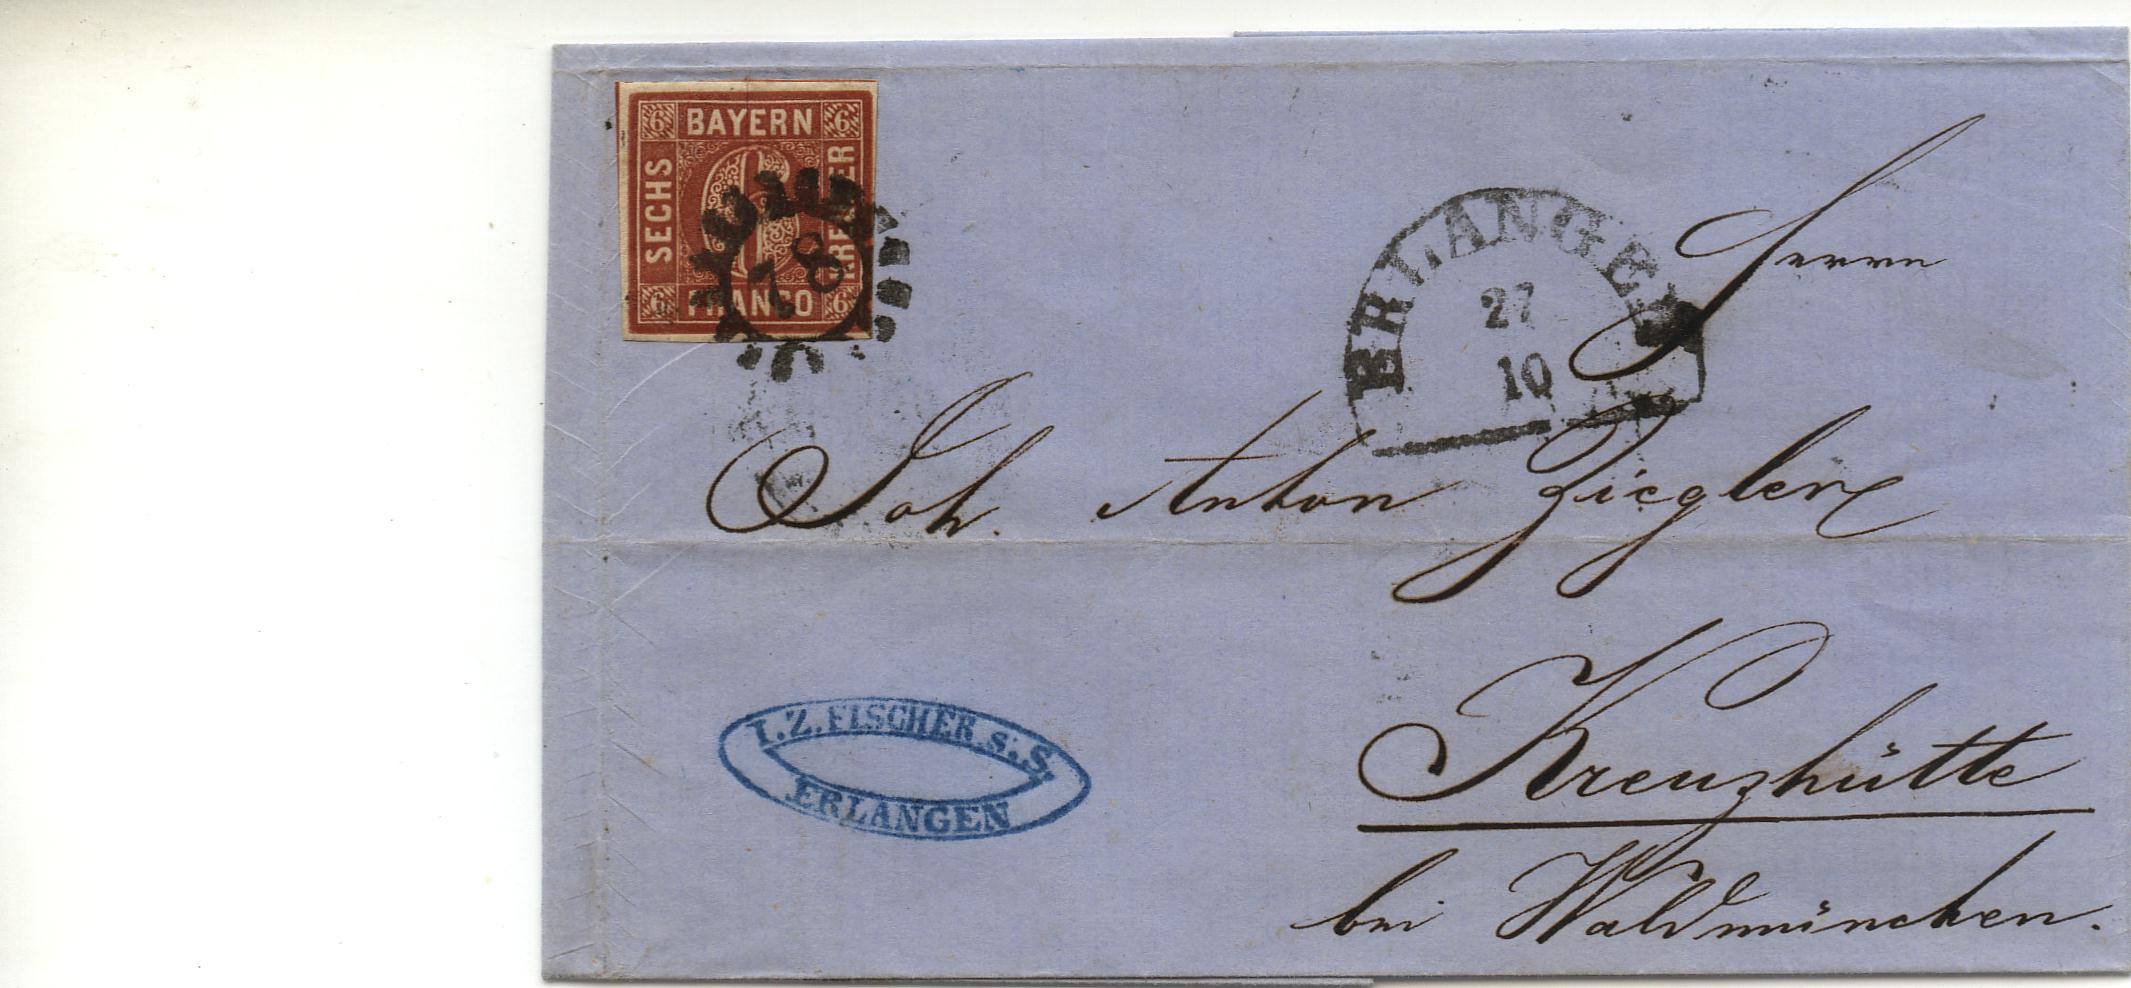 6 BAYERN 6
SECHS
6
KREUZER
6 FRANCO 6
78
ERLANGEN
27
10
Herrn
Joh. Anton Ziegler
Kreuzhütte
bei Waldmünchen.
I. Z. FISCHER s. S.
ERLANGEN